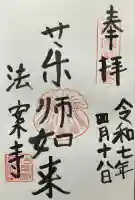 奉拝
令和七年
四月十八日
薬師如来
法案寺